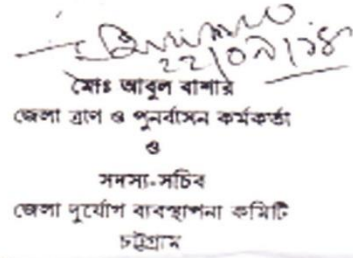 ২২/০৭/১৪
মোঃ আবুল বাশার
জেলা ত্রাণ ও পুনর্বাসন কর্মকর্তা
ও
সদস্য-সচিব
জেলা দুর্যোগ ব্যবস্থাপনা কমিটি
চট্টগ্রাম